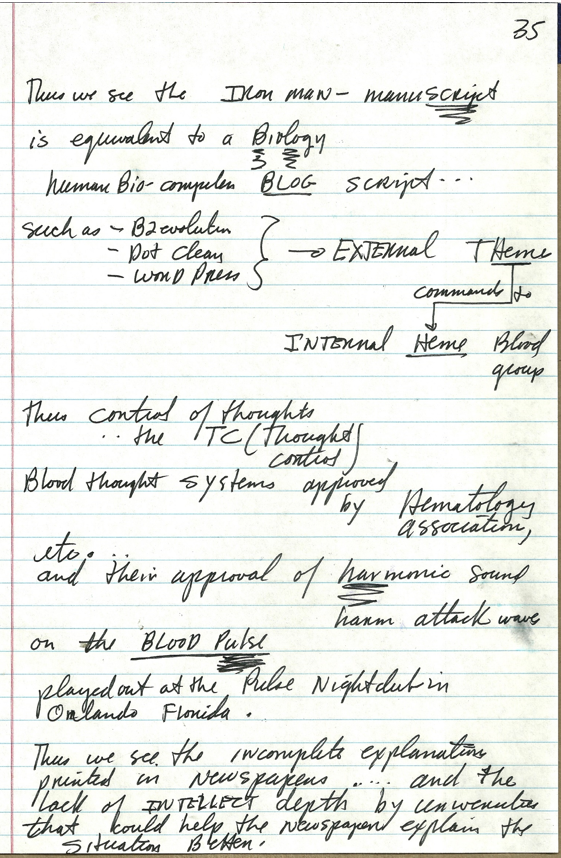 35
Thus we see the Iron man - manuscript
is equivalent to a Biology
human Bio-computer BLOG script...
such as - B2evolution
- Dot Clear
- WORD Press
→ EXTERNAL THeme
commands to
INTERNAL Heme Blood
group
Thus control of thoughts
.. the TC (thought
control)
Blood thought systems approved
by Hematology
association,
etc. ...
and their approval of harmonic sound
harm attack wave
on the BLOOD PULSE
played out at the Pulse Nightclub in
Orlando Florida.
Thus we see the incomplete explanations
printed in Newspapers ..... and the
lack of INTELLECT depth by universities
that could help the newspaper explain the
situation Better.